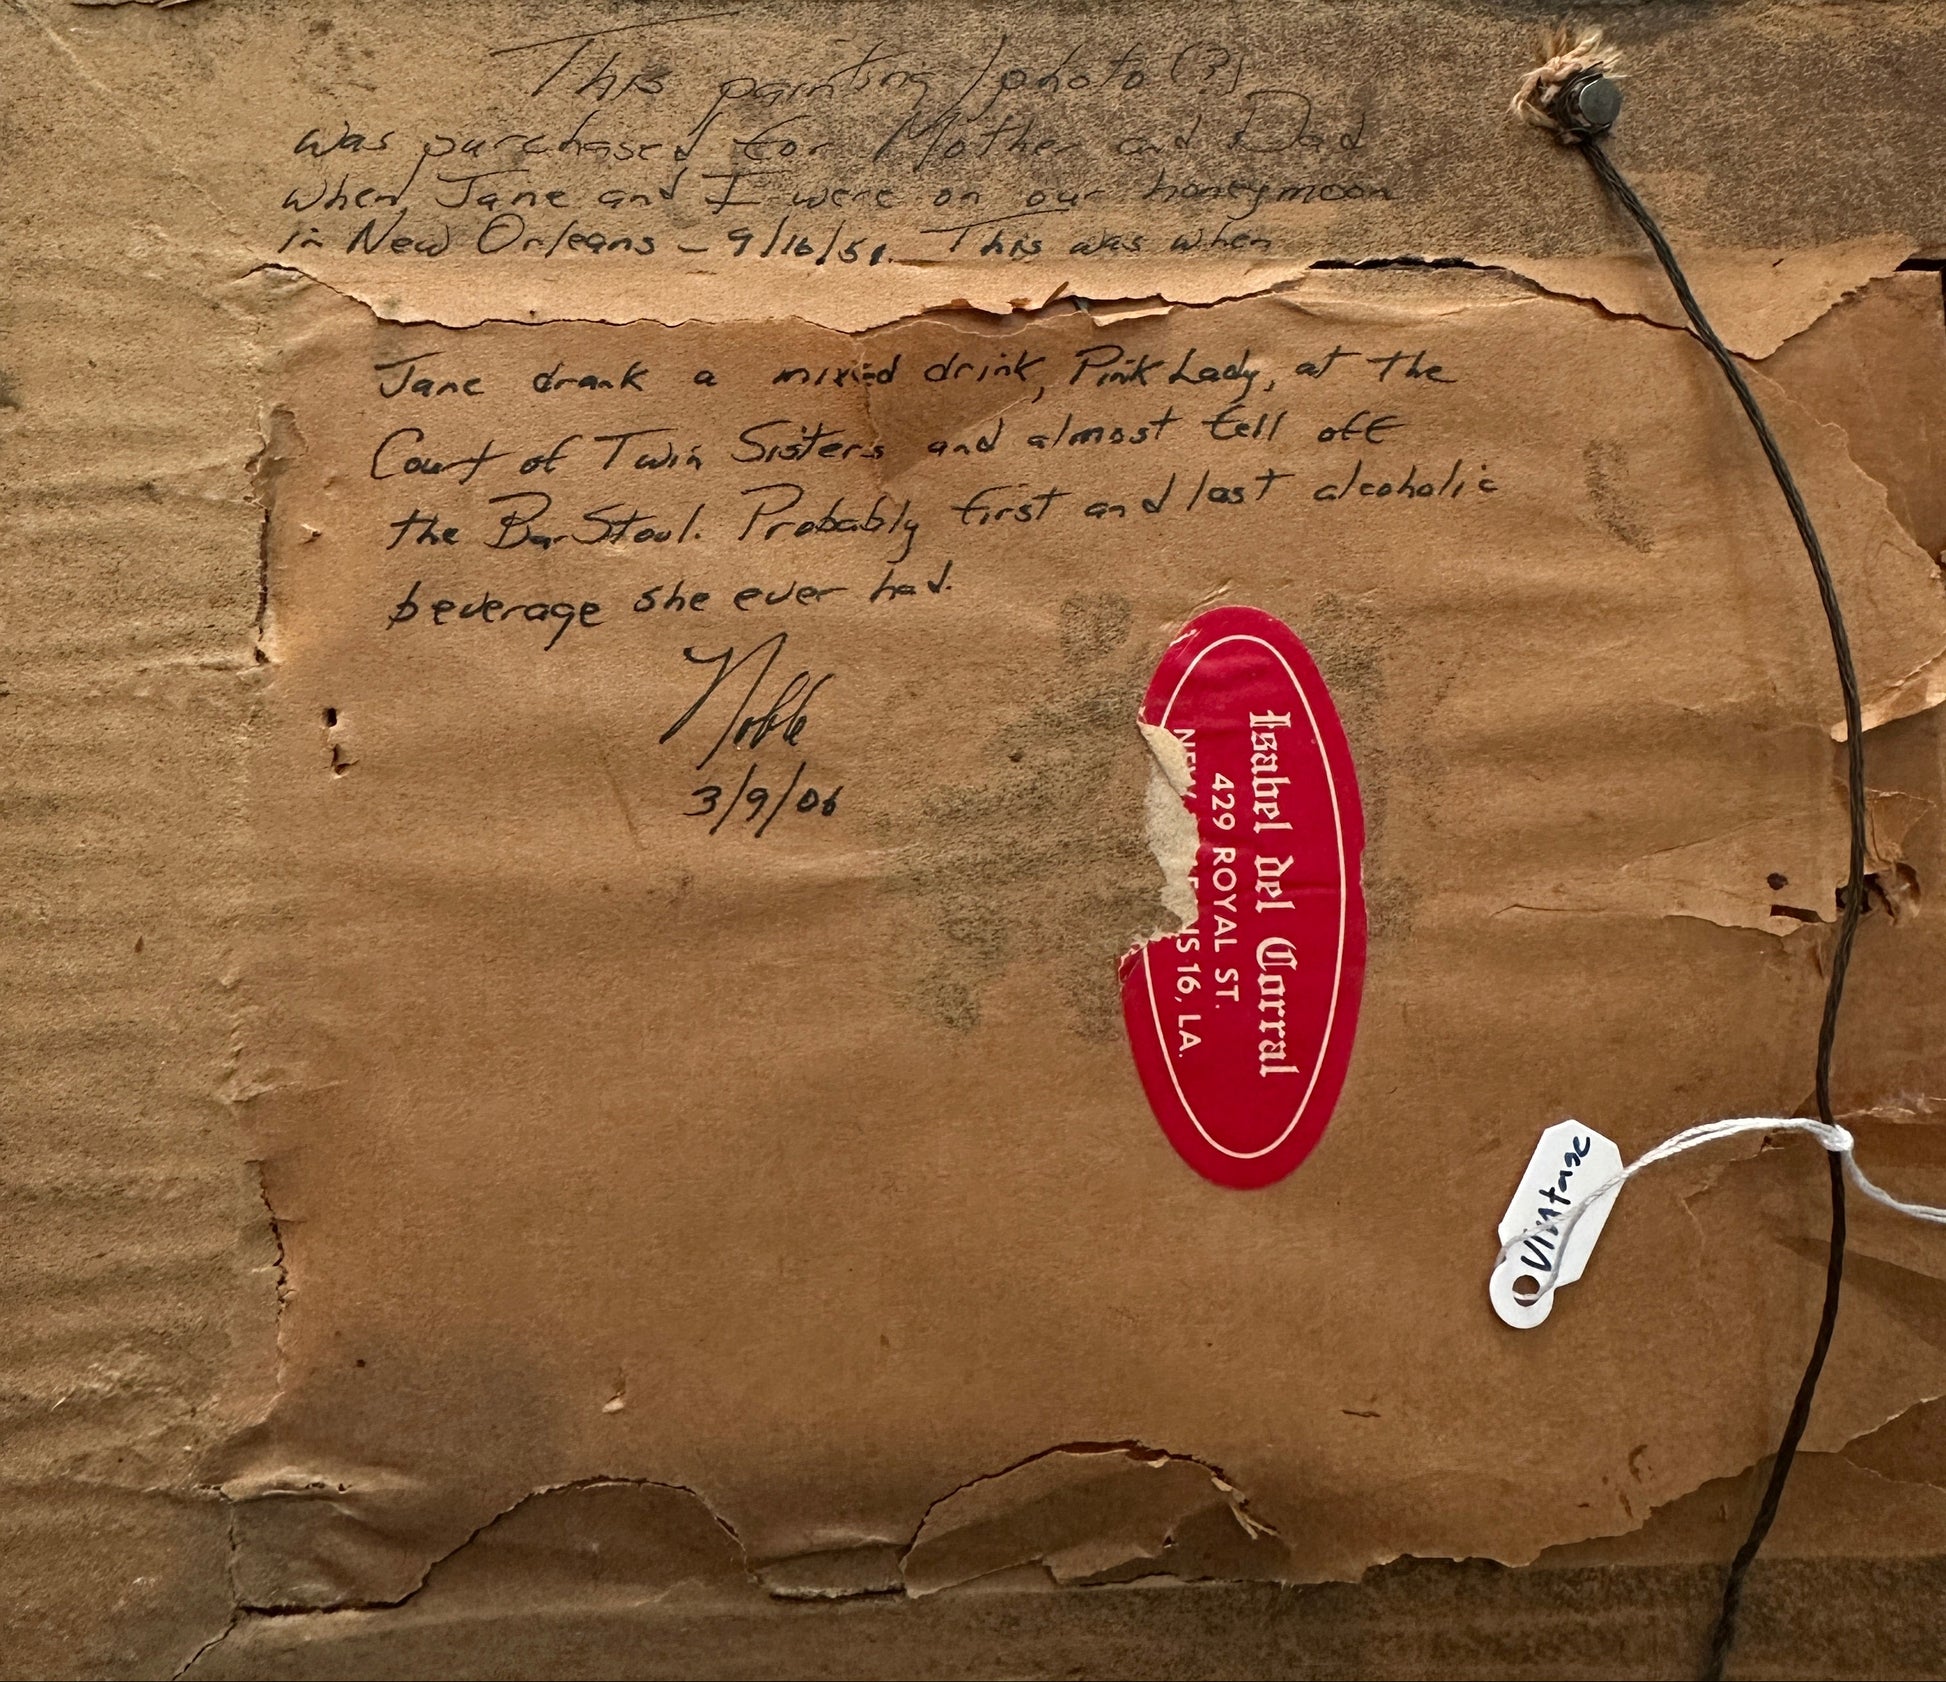 This painting / photo (?)
was purchased for Mother and Dad
when Jane and I were on our honeymoon
in New Orleans - 9/16/51. This was when
Jane drank a mixed drink, Pink Lady, at the
Court of Twin Sisters and almost fell off
the Bar Stool. Probably first and last alcoholic
beverage she ever had.
Noble
3/9/06
Isabel del Corral
429 ROYAL ST.
16, LA.
Vintage